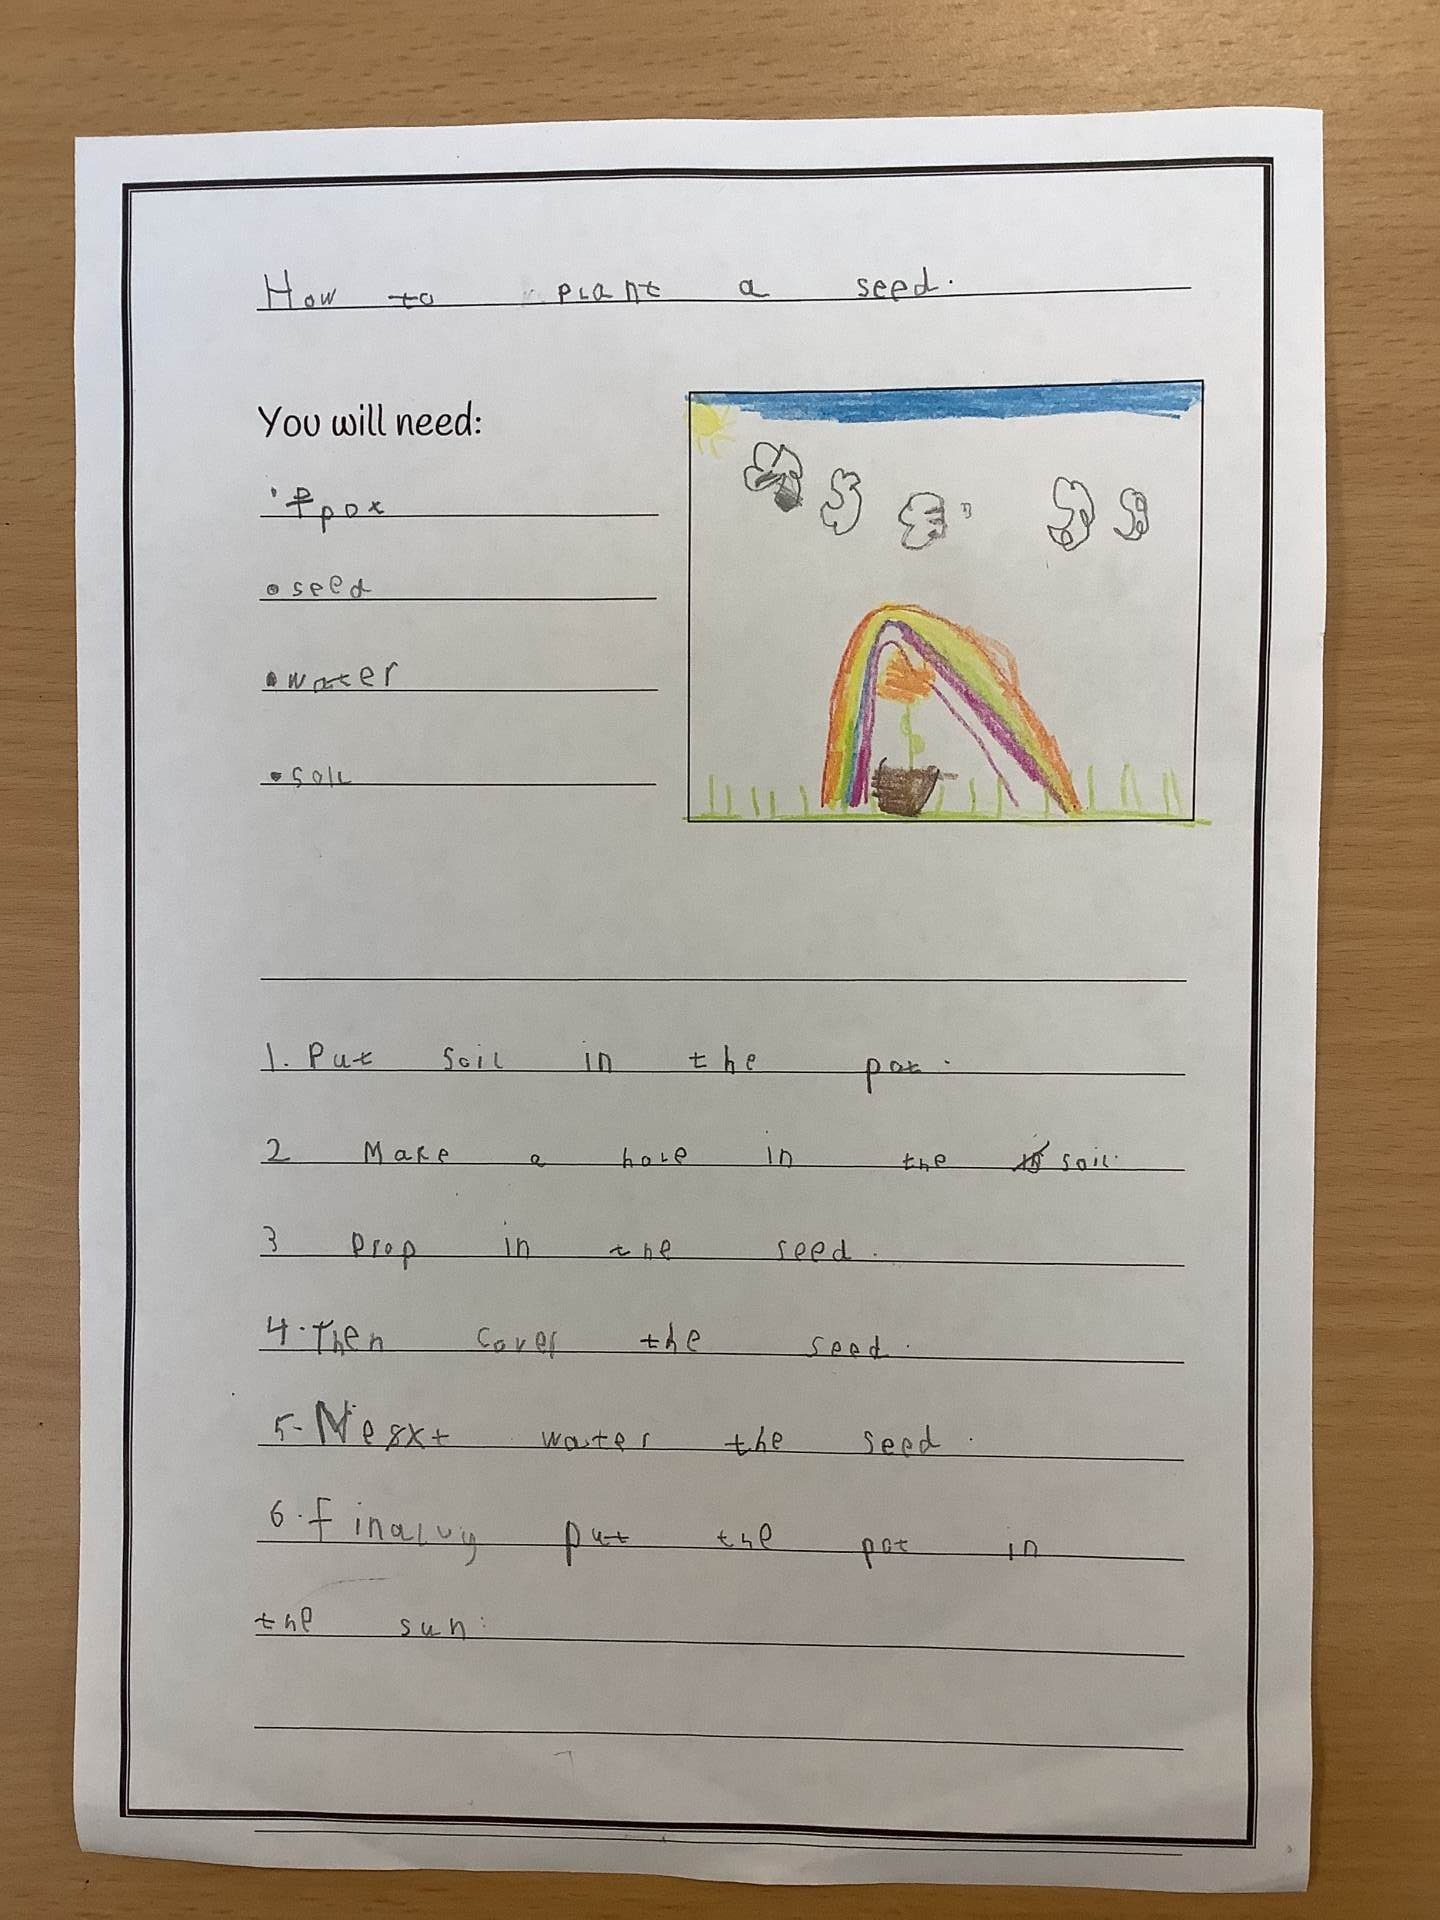 How to plant a seed.
You will need:
• pot
• seed
• water
• soil
1. Put soil in the pot.
2 Make a hole in the soil.
3 Drop in the seed.
4. Then cover the seed.
5- Nesxt water the seed.
6. Finallly put the pot in
the sun.